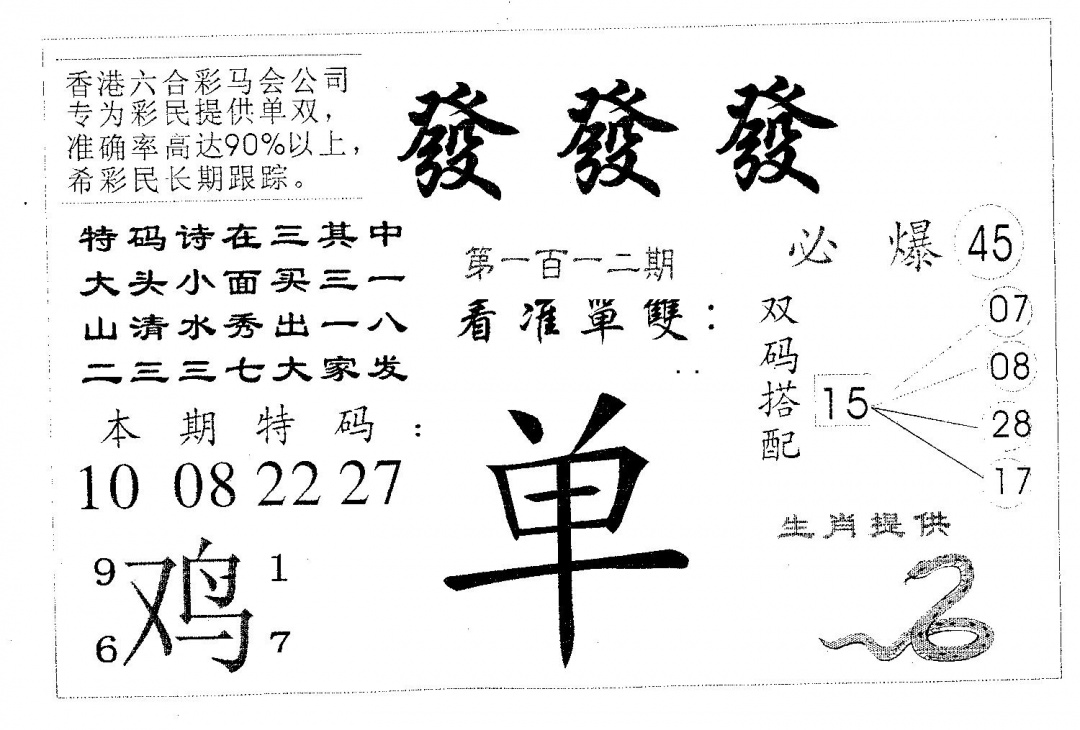 香港六合彩马会公司
专为彩民提供单双，
准确率高达90%以上，
希彩民长期跟踪。
發 發 發
特码诗在三其中
大头小面买三一
山清水秀出一八
二三三七大家发
第一百一二期
看准單雙：
单
必爆 45
双码搭配
15
07
08
28
17
本期特码：
10 08 22 27
9 1
鸡
6 7
生肖提供